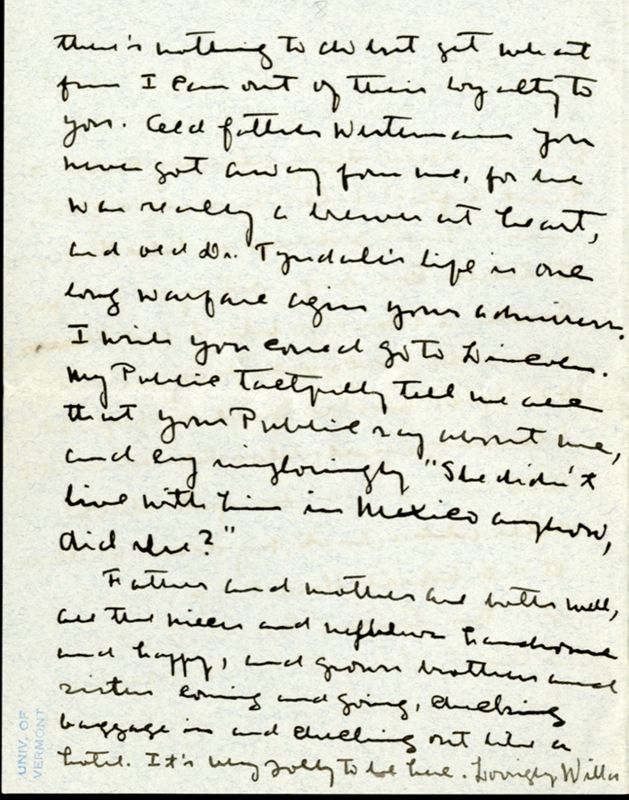 there's nothing to do but get what
fun I can out of their loyalty to
you. Old father Westermann you
never got away from me, for he
was really a brewer at heart,
and old Dr. Tyndale's life is one
long warfare agin your admirers.
I wish you could go to Lincoln.
My Public tactfully tell me all
that your Public say about me,
and cry imploringly "She didn't
live with him in Mexico anyhow,
did she?"
Father and mother are both well,
all the nieces and nephews handsome
and happy, and grown brothers and
sisters coming and going, checking
baggage in and checking out like a
hotel. It's very jolly to be here. Lovingly Willa
UNIV. OF
VERMONT